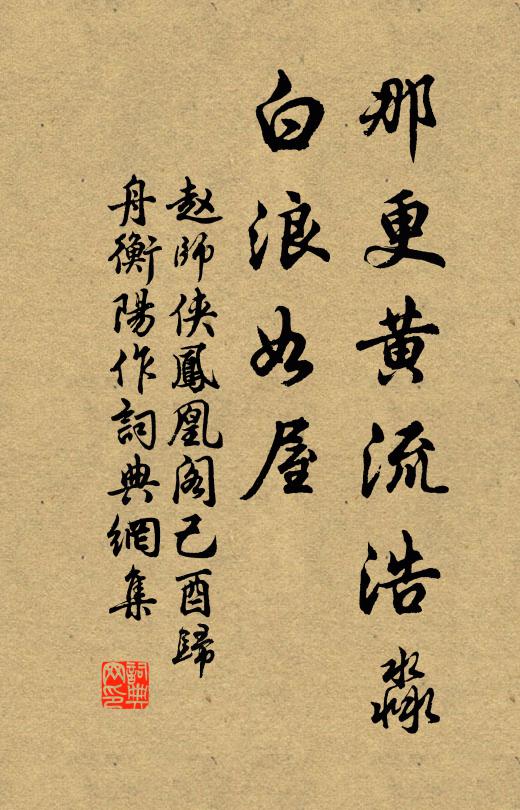 那更黄流浩淼
白浪如屋
赵師侠鳳凰阁己酉歸
舟衡陽作詞典網集
詞典网印